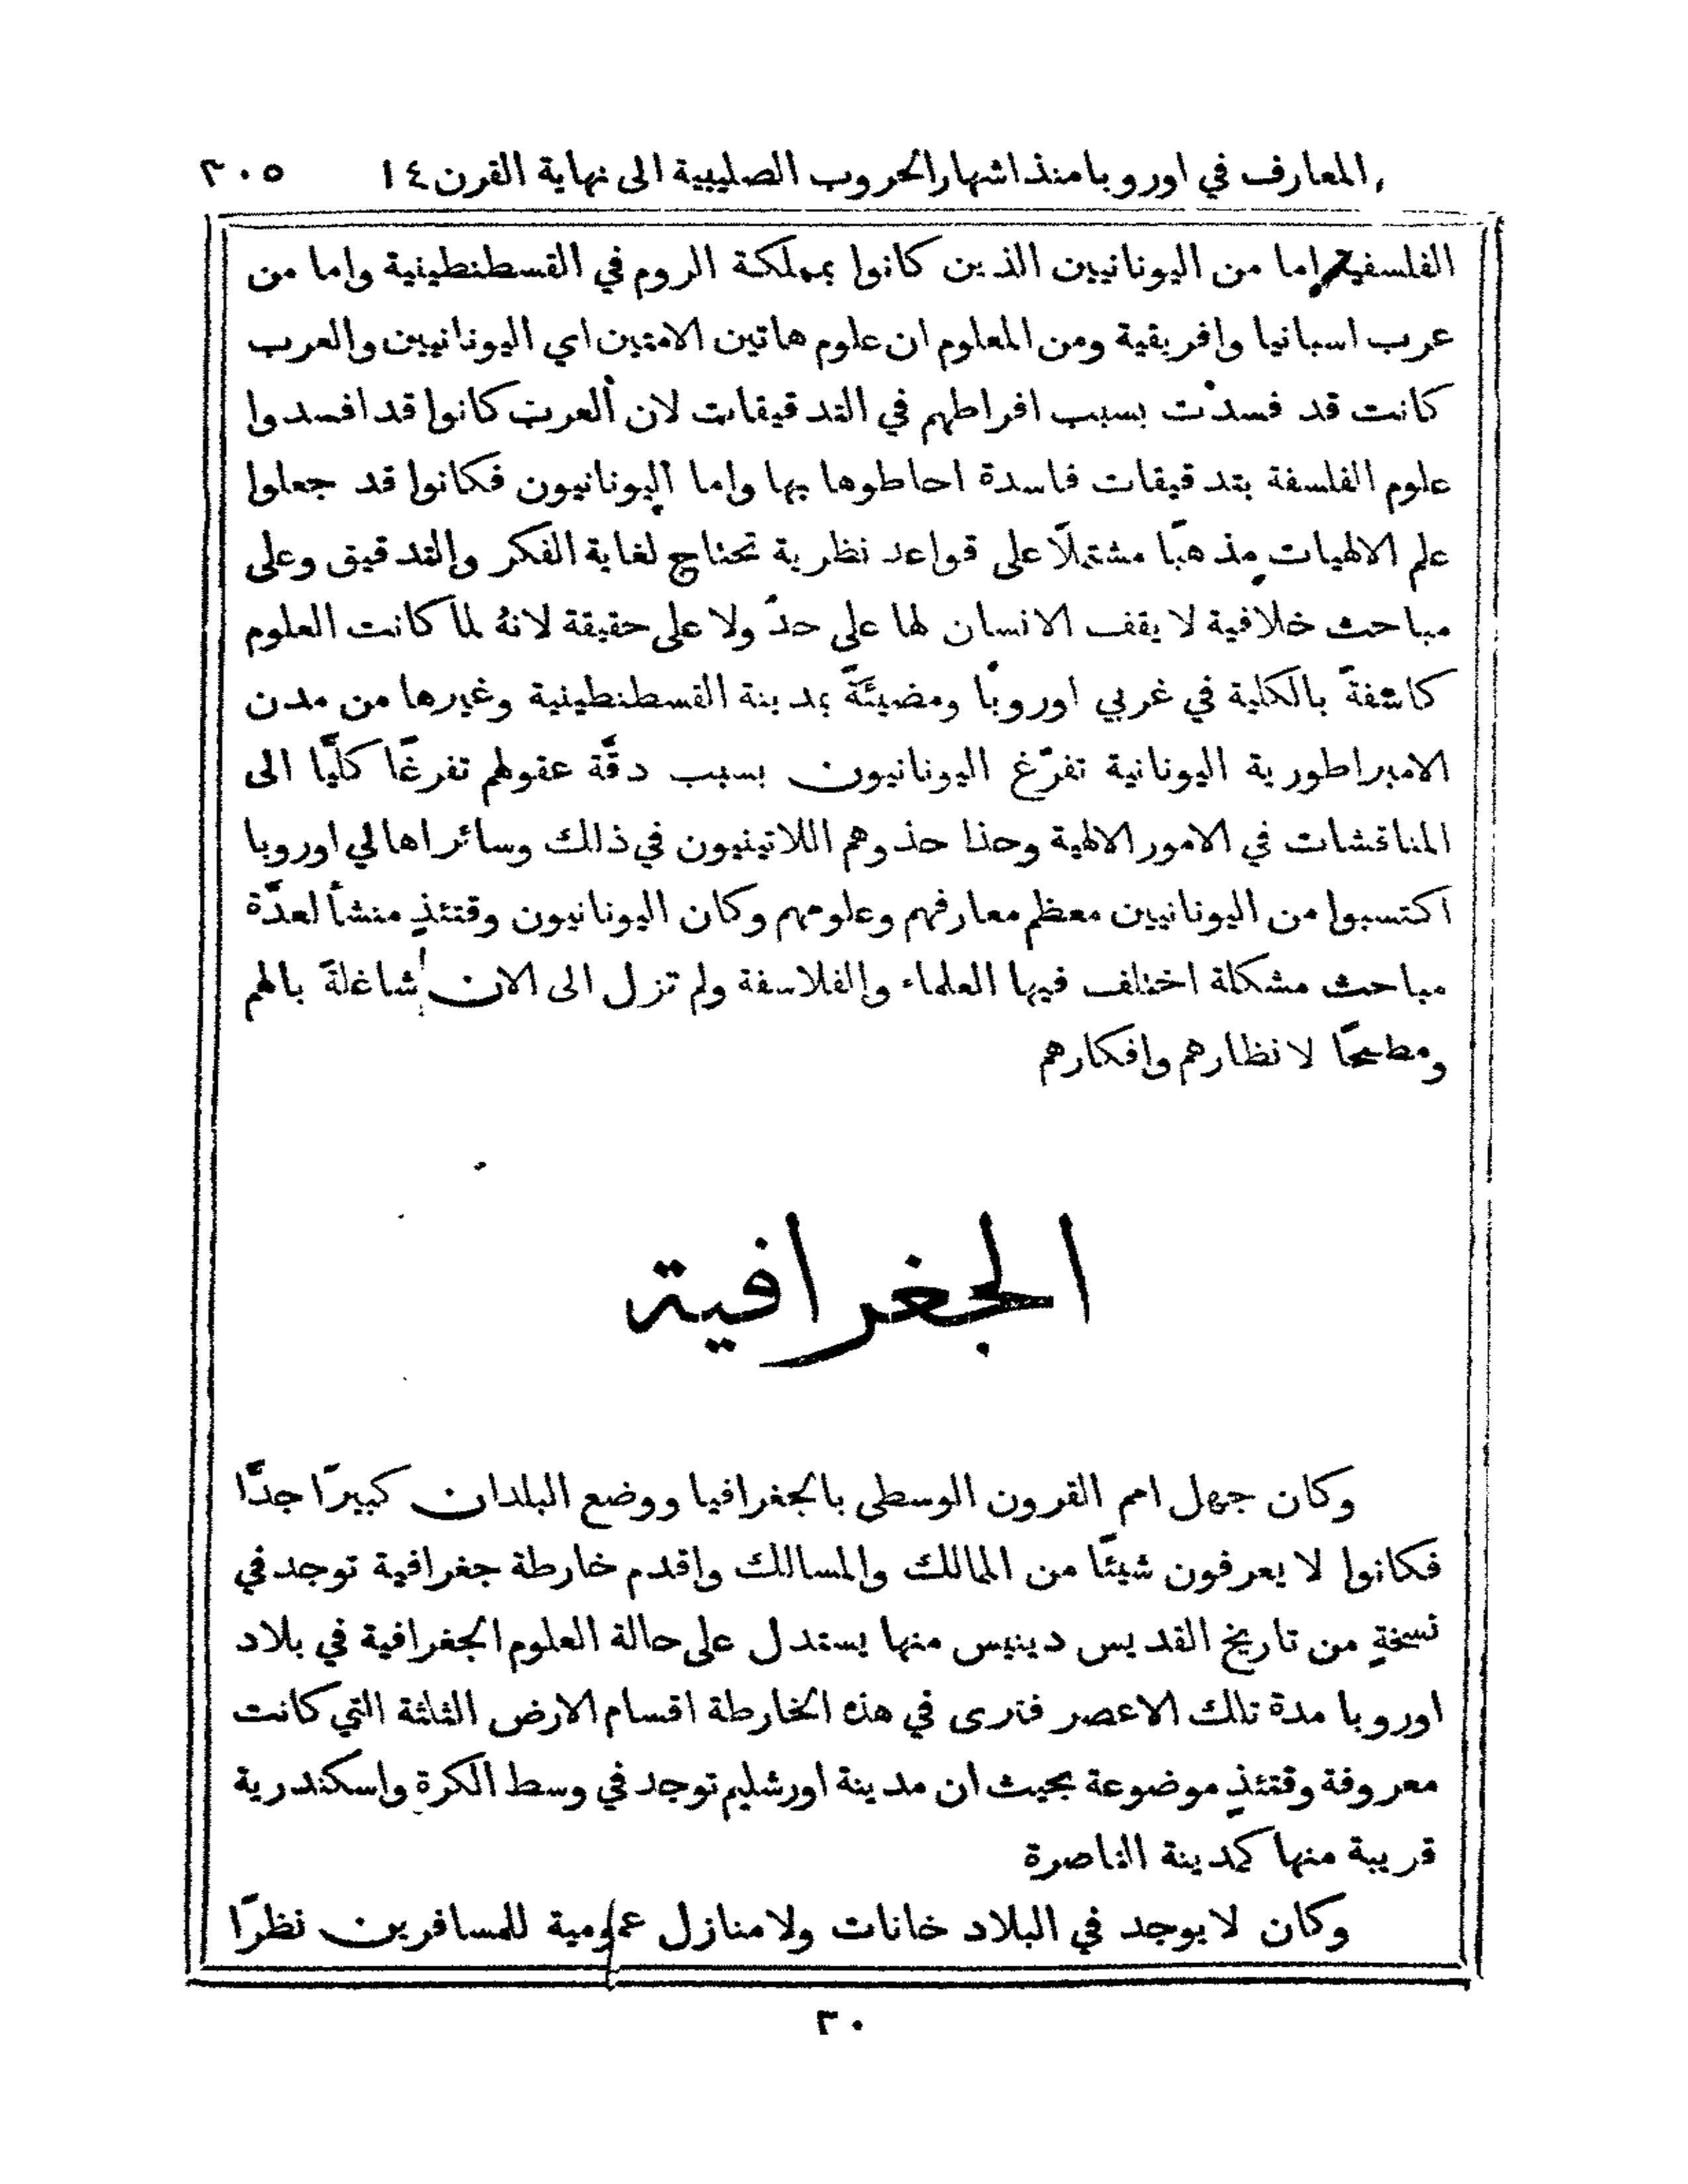 المعارف في اوروبا منذ اشهار الحروب الصليبية الى نهاية القرن ١٤ ٣٠٥
الفلسفية اما من اليونانيين الذين كانوا بمملكة الروم في القسطنطينية واما من
عرب اسبانيا وافريقية ومن المعلوم ان علوم هاتين الامتين اي اليونانيين والعرب
كانت قد فسدت بسبب افراطهم في التدقيقات لان العرب كانوا قد افسدوا
علوم الفلسفة بتدقيقات فاسدة احاطوها بها واما اليونانيون فكانوا قد جعلوا
علم الالهيات مذهبًا مشتملًا على قواعد نظرية تحتاج لغاية الفكر والتدقيق وعلى
مباحث خلافية لا يقف الانسان لها على حدّ ولا على حقيقة لانهُ لما كانت العلوم
كاسفةً بالكلية في غربي اوروبا ومضيئةً بمدينة القسطنطينية وغيرها من مدن
الامبراطورية اليونانية تفرّغ اليونانيون بسبب دقَّة عقولهم تفرغًا كليًّا الى
المناقشات في الامور الالهية وحذا حذوهم اللاتينيون في ذلك وسائر اهالي اوروبا
اكتسبوا من اليونانيين معظم معارفهم وعلومهم وكان اليونانيون وقتئذٍ منشأً لعدَّة
مباحث مشكلة اختلف فيها العلماء والفلاسفة ولم تزل الى الان شاغلةً بالهم
ومطمحًا لانظارهم وافكارهم
الجغرافية
وكان جهل امم القرون الوسطى بالجغرافيا ووضع البلدان كبيرًا جدًّا
فكانوا لا يعرفون شيئًا من الممالك والمسالك واقدم خارطة جغرافية توجد في
نسخةٍ من تاريخ القديس دينيس منها يستدل على حالة العلوم الجغرافية في بلاد
اوروبا مدة تلك الاعصر فترى في هذه الخارطة اقسام الارض الثلثة التي كانت
معروفة وقتئذٍ موضوعة بحيث ان مدينة اورشليم توجد في وسط الكرة واسكندرية
قريبة منها كمدينة الناصرة
وكان لا يوجد في البلاد خانات ولا منازل عمومية للمسافرين نظرًا
٣٠